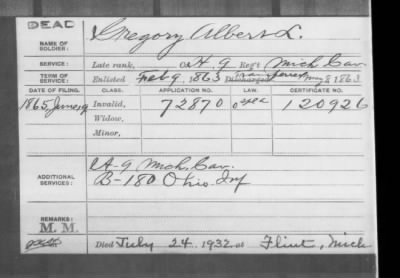 DEAD
NAME OF SOLDIER: Gregory Albert L.
SERVICE: Late rank, Co. A, 9 Reg't Mich Cav.
TERM OF SERVICE: Enlisted Feb 9, 1863 Discharged Transferred May 8 1863
DATE OF FILING. CLASS. APPLICATION NO. LAW. CERTIFICATE NO.
1865 June, 9 Invalid, 72870 120926
Widow,
Minor,
ADDITIONAL SERVICES: A-9 Mich. Cav.
B-180 Ohio. Inf
REMARKS:
M. M.
Died July 24 1932, at Flint, Mich